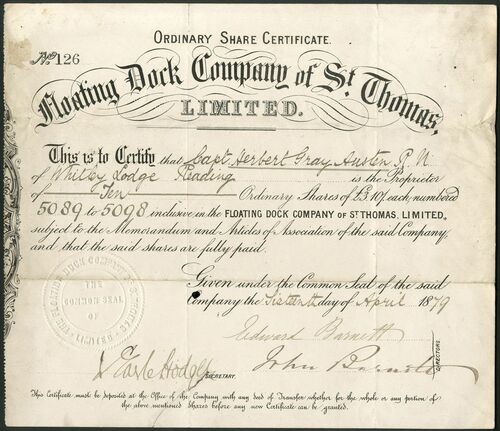 ORDINARY SHARE CERTIFICATE.
No 126
Floating Dock Company of St. Thomas,
LIMITED.
This is to Certify that Capt. Herbert Gray Austen R.N.
of Whitley Lodge Reading is the Proprietor
of Ten Ordinary Shares of £3.10/, each, numbered
5089 to 5098 inclusive in the FLOATING DOCK COMPANY OF ST THOMAS, LIMITED,
subject to the Memorandum and Articles of Association of the said Company,
and that the said shares are fully paid.
Given under the Common Seal of the said
Company the Sixteenth day of April 1879
THE FLOATING DOCK COMPANY OF ST THOMAS LIMITED
THE
COMMON SEAL
OF
Edward Barnett
John
DIRECTORS.
SECRETARY.
This Certificate must be deposited at the Office of the Company with any deed of Transfer whether for the whole or any portion of
the above mentioned Shares before any new Certificate can be granted.